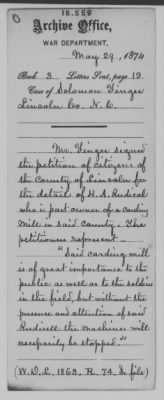 18.559
Archive Office,
WAR DEPARTMENT,
May 29, 1874
Book 3 Letters Sent, page 19
Case of Solomon Finger
Lincoln Co. N. C.
Mr. Finger signed
the petition of Citizens of
the County of Lincoln for
the detail of H. A. Rudisal
who is part owner of a carding
Mill in said County. The
petitioners represent
"Said carding mill
is of great importance to the
public as well as to the soldiers
in the field, but without the
presence and attention of said
Rudisell the machines will
necessarily be stopped"
(W.D.L. 1863. R. 74. In file)